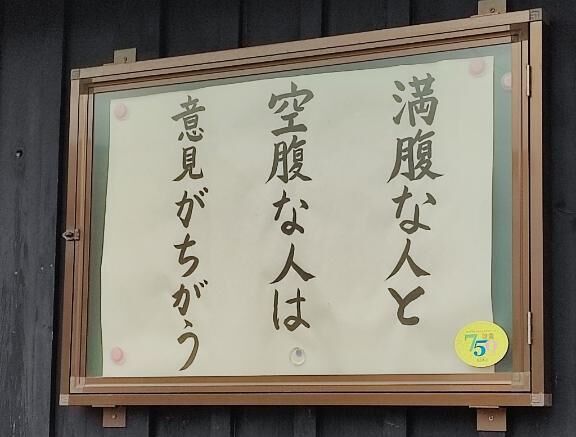 満腹な人と
空腹な人は
意見がちがう
75